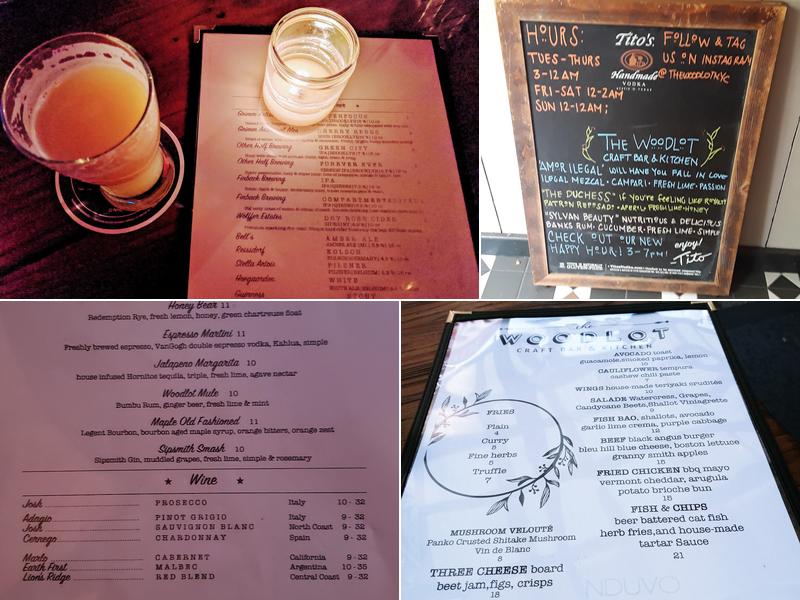 Other Half Brewing GREEN CITY
Other Half Brewing FOREVER EVER
Finback Brewing IPA
Finback Brewing
Wolffer Estates DRY ROSE CIDER
Bell's AMBER ALE
Reissdorf KOLSCH
Stella Artois PILSNER
Hoegaarden WHITE
Guinness STOUT
HOURS:
TUES - THURS
3-12AM
FRI-SAT 12-2AM
SUN 12-12AM;
Tito's
Handmade
VODKA
AUSTIN TEXAS
FOLLOW & TAG
US ON INSTAGRAM
@THEWOODLOTNYC
THE WOODLOT
CRAFT BAR & KITCHEN
"AMOR ILEGAL" WILL HAVE YOU FALL IN LOVE
ILEGAL MEZCAL · CAMPARI · FRESH LIME · PASSION
"THE DUCHESS" if you're FEELING LIKE ROYALTY
PATRON REPOSADO · APEROL FRESH LIME · HONEY
"SYLVAN BEAUTY" NUTRITIOUS & DELICIOUS
BANKS RUM · CUCUMBER · FRESH LIME · SIMPLE
CHECK OUT OUR NEW
HAPPY HOUR! 3-7pm!
enjoy!
Tito
Honey Bear 11
Redemption Rye, fresh lemon, honey, green chartreuse float
Espresso Martini 11
Freshly brewed espresso, VanGogh double espresso vodka, Kahlua, simple
Jalapeno Margarita 10
house infused Hornitos tequila, triple, fresh lime, agave nectar
Woodlot Mule 10
Bumbu Rum, ginger beer, fresh lime & mint
Maple Old Fashioned 11
Legent Bourbon, bourbon aged maple syrup, orange bitters, orange zest
Sipsmith Smash 10
Sipsmith Gin, muddled grapes, fresh lime, simple & rosemary
★ Wine ★
Josh PROSECCO Italy 10 - 32
Adagio PINOT GRIGIO Italy 9 - 32
Josh SAUVIGNON BLANC North Coast 9 - 32
Cernego CHARDONNAY Spain 9 - 32
Marlo CABERNET California 9 - 32
Earth First MALBEC Argentina 10 - 35
Lion's Ridge RED BLEND Central Coast 9 - 32
the
WOODLOT
CRAFT BAR & KITCHEN
FRIES
Plain
4
Curry
5
Fine herbs
5
Truffle
7
MUSHROOM VELOUTÉ
Panko Crusted Shitake Mushroom
Vin de Blanc
8
THREE CHEESE board
beet jam,figs, crisps
18
AVOCADO toast
guacamole,smoked paprika, lemon
10
CAULIFLOWER tempura
cashew chili paste
7
WINGS house-made teriyaki crudités
10
SALADE Watercress, Grapes,
Candycane Beets,Shallot Viniagrette
9
FISH BAO, shallots, avocado
garlic lime crema, purple cabbage
12
BEEF black angus burger
bleu hill blue cheese, boston lettuce
granny smith apples
15
FRIED CHICKEN bbq mayo
vermont cheddar, arugula
potato brioche bun
15
FISH & CHIPS
beer battered cat fish
herb fries,and house-made
tartar Sauce
21
NDUVO